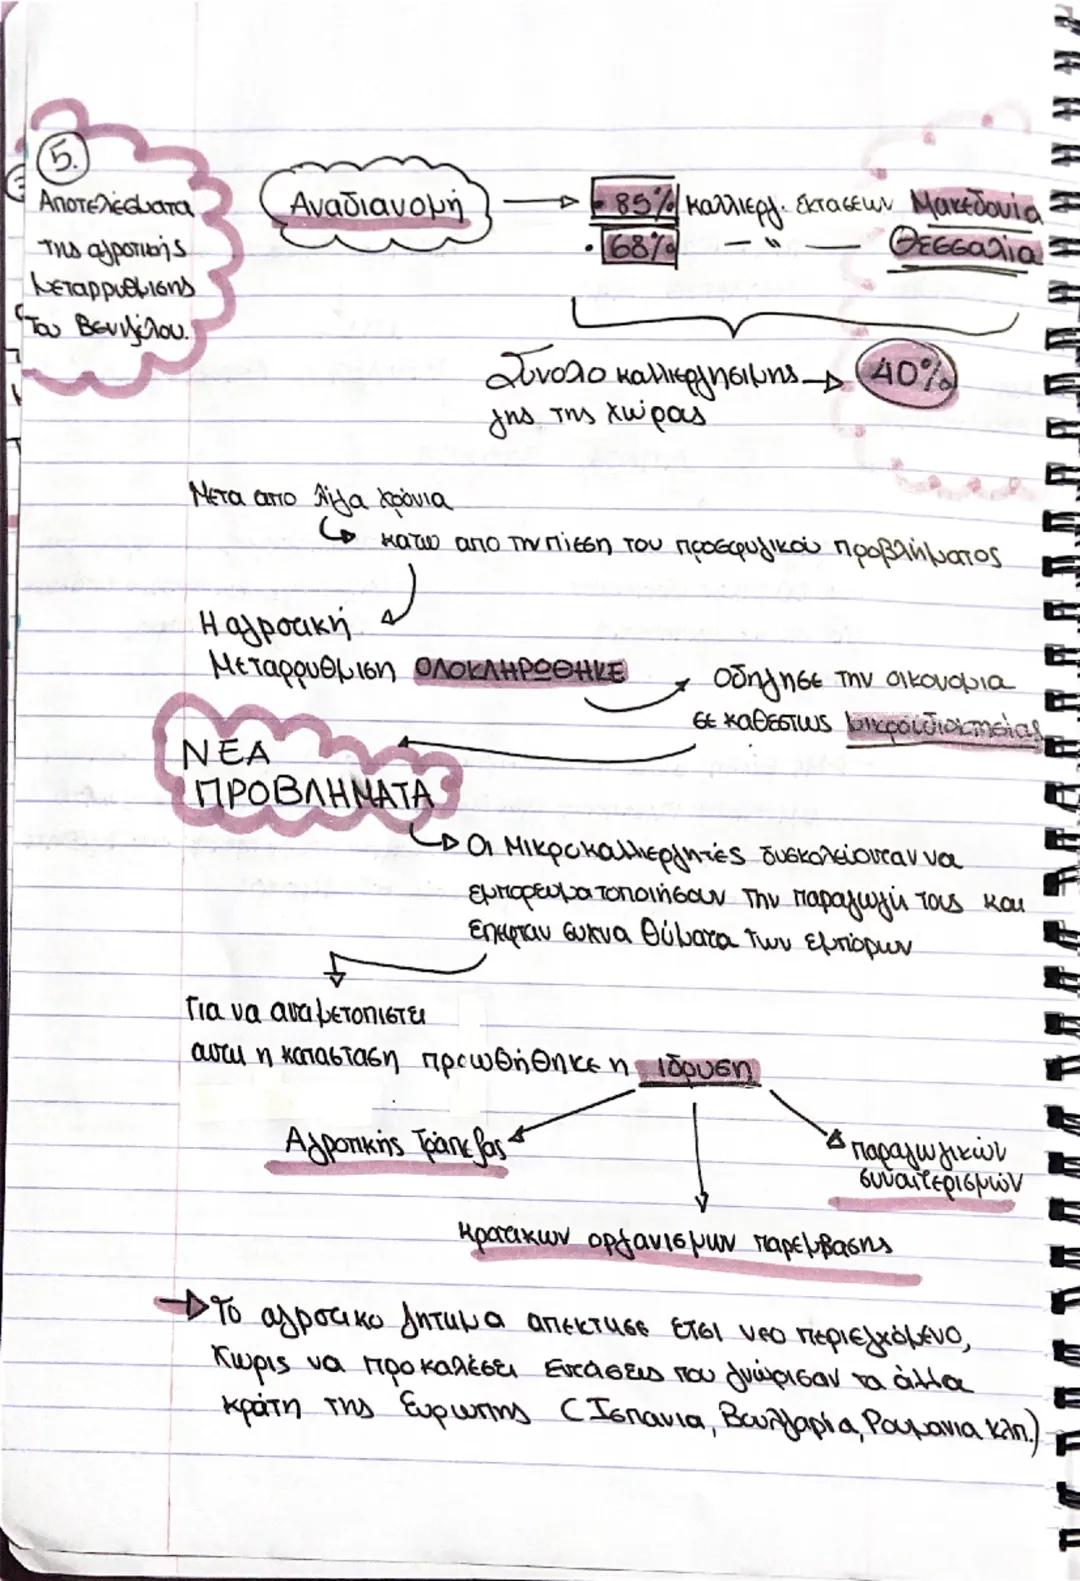 5.
Αποτελέσματα
της αγροτικής
μεταρρυθμισης
Του Βενιζέλου.
Αναδιανομή
• 85% καλλιεργ. εκτασεων Μακεδονία
• 68% — " — Θεσσαλία
Σύνολο καλλιεργησιμης → 40%
γης της χώρας
Μετα απο λίγα χρόνια
κατω απο την πίεση του προσφυγικού προβλήματος
Η αγροτική
Μεταρρυθμιση ΟΛΟΚΛΗΡΩΘΗΚΕ
οδήγησε την οικονομια
σε καθεστως μικροϊδιοκτησίας
ΝΕΑ
ΠΡΟΒΛΗΜΑΤΑ
Οι Μικροκαλλιεργητές δυσκολεύονταν να
εμπορευματοποιήσουν την παραγωγή τους και
επεφταν συχνα θύματα των εμπόρων
Για να αντιμετοπιστει
αυτη η κατασταση προωθήθηκε η ιδρυση
Αγροτικής Τράπεζας
παραγωγικών
συναιτερισμών
Κρατικων οργανισμων παρεμβασης
→ Το αγροτικο ζητημα απεκτησε ετσι νεο περιεχόμενο,
Χωρις να προκαλέσει Εντάσεις που γνώρισαν τα άλλα
κράτη της Ευρωπης (Ισπανια, Βουλγαρία, Ρουμανια κλπ.)